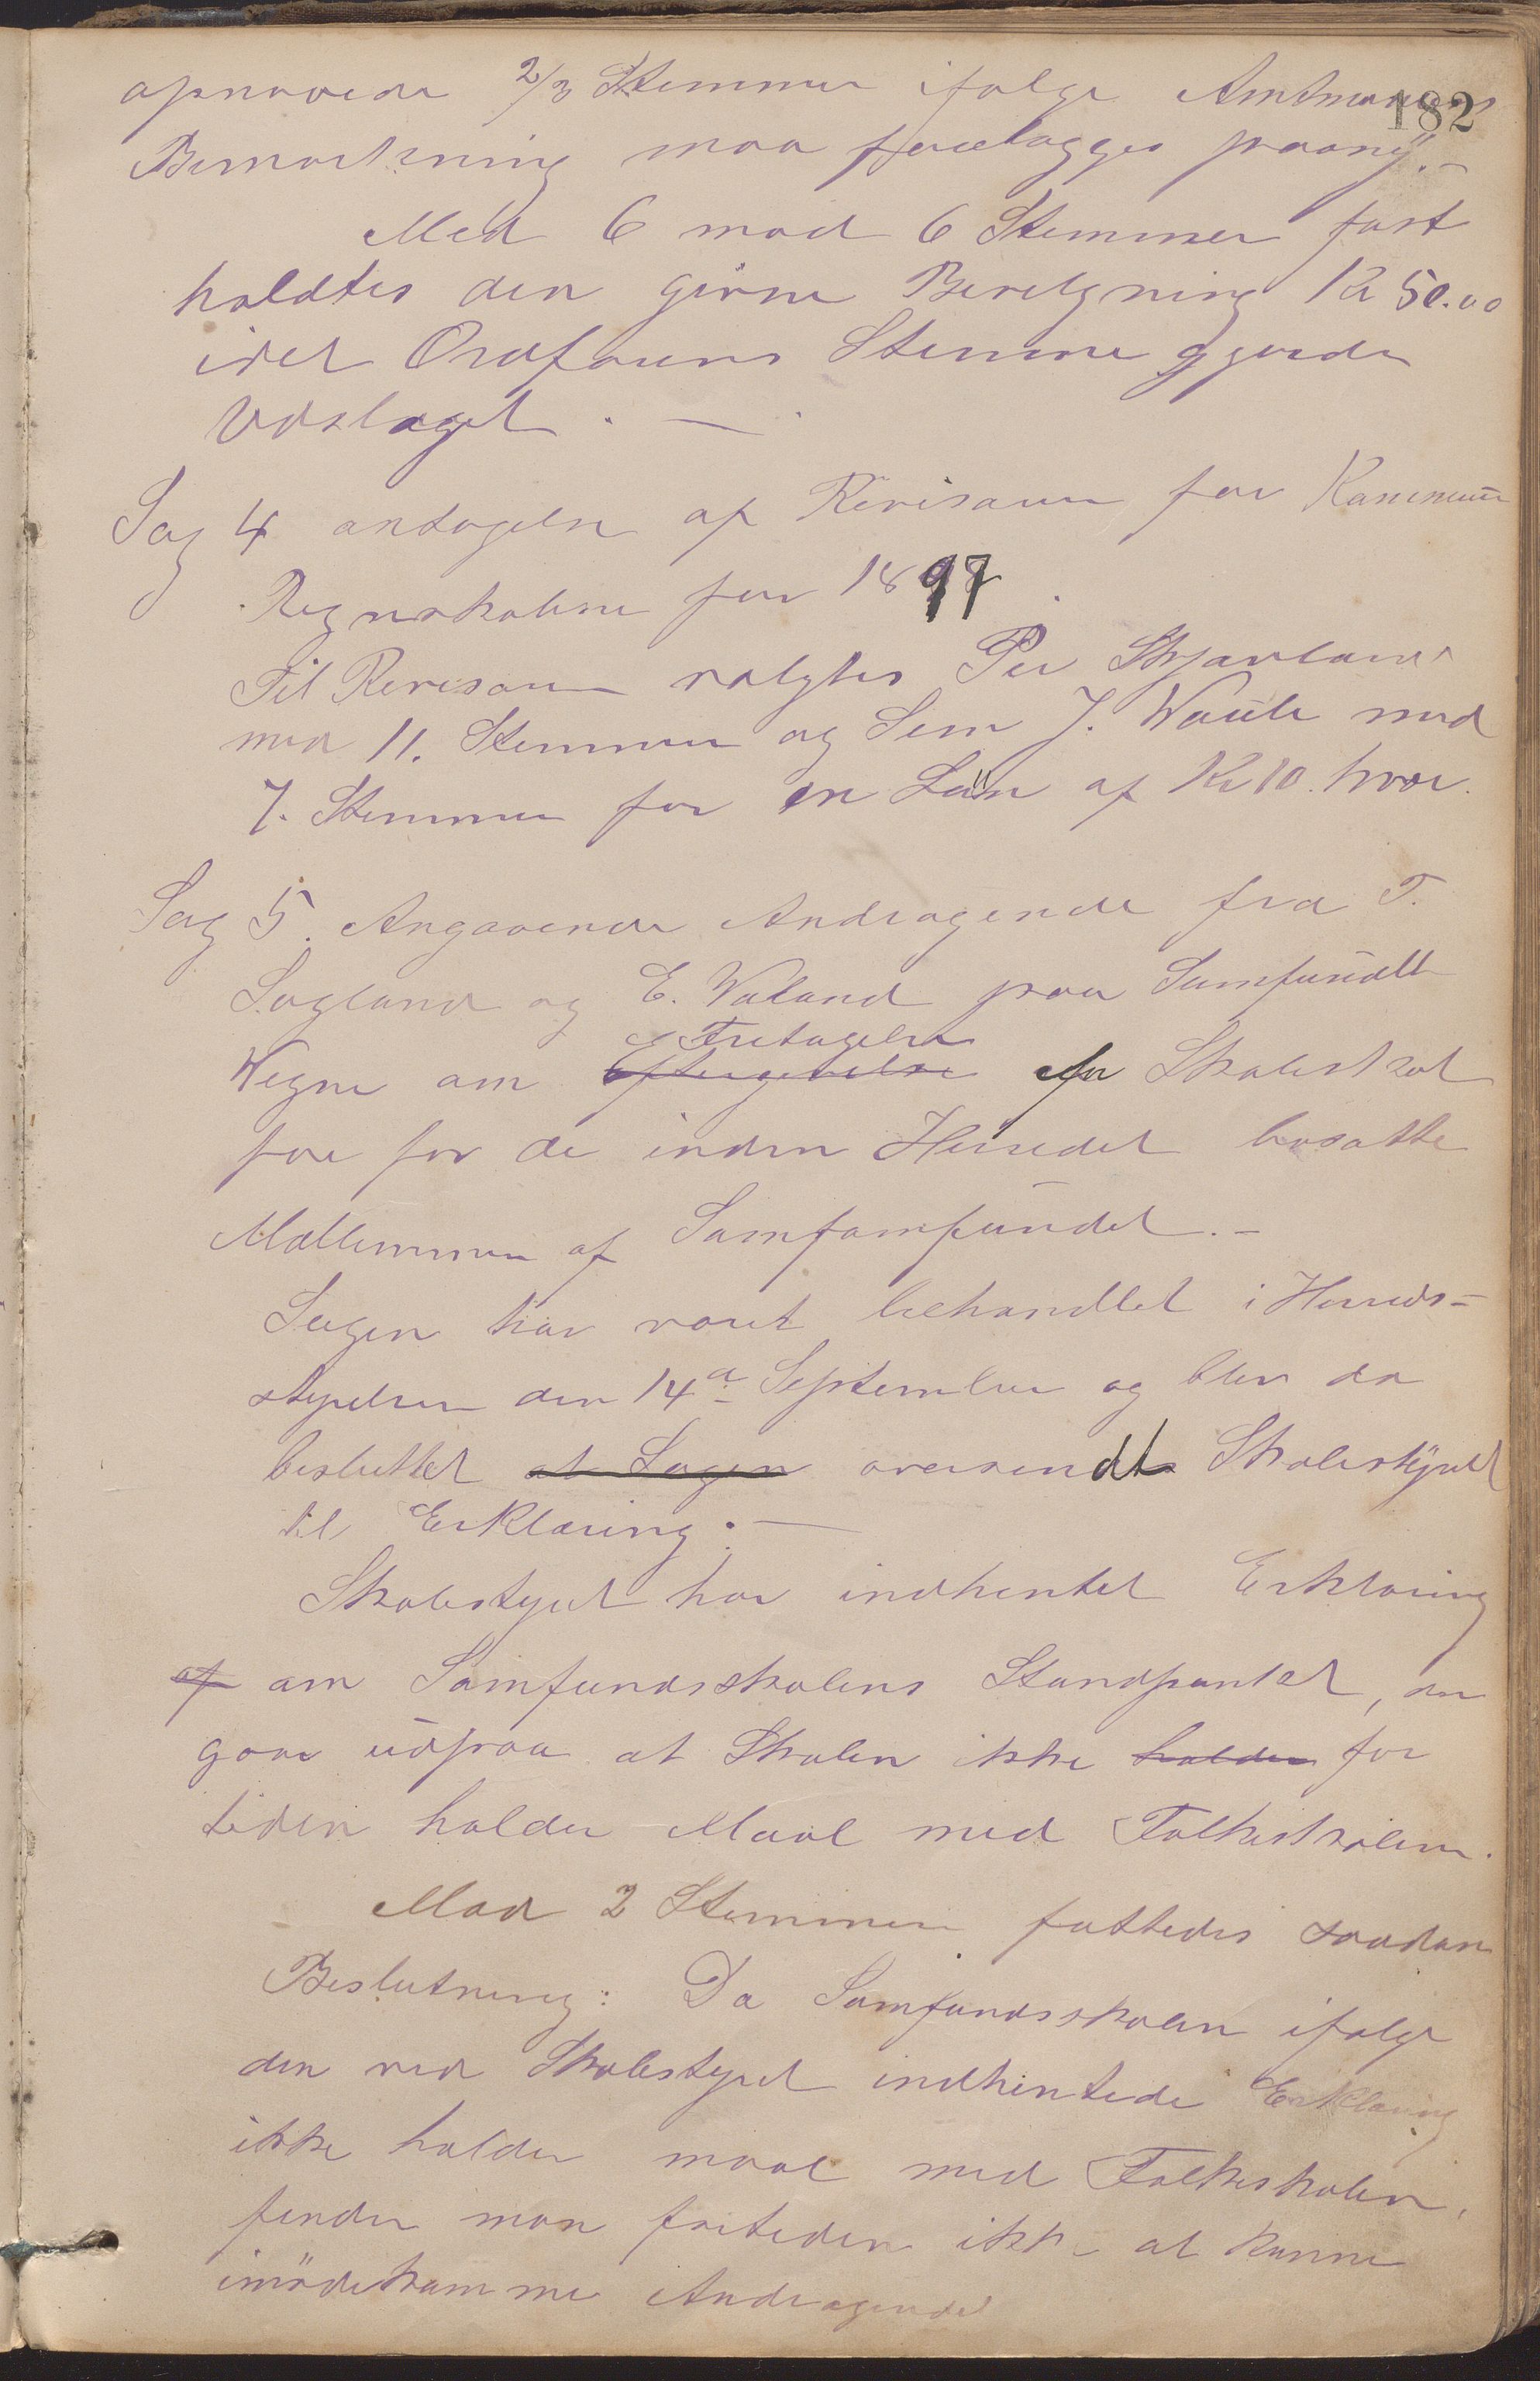 182
opnaaede 2/3 Stemmer ifølge Amtmandens
Bemærkning maa forelægges paany.-
Med 6 mod 6 Stemmer fast
holdtes den givne Bevilgning Kr 50.00
idet Ordførerens Stemme gjorde
Udslaget. —
Sag 4 antagelse af Revisorer for Kommune
Regnskaberne for 1897.
Til Revisorer valgtes Per Skjærland
med 11. Stemmer og Sem J. Waule med
7. Stemmer for en Løn af Kr 10. hver.
Sag 5. Angaaende Andragende fra T.
Lagland og E. Valand paa Samfundets
Fritagelse
Vegne om Eftergivelse for Skoleskat
for de inden Herredet bosatte
Medlemmer af Samfamfundet.-
Sagen har været behandlet i Herreds-
styrelsen den 14de September og blev da
besluttet at Sagen oversendt Skolestyret
til Erklæring. —
Skolestyret har indhentet Erklæring
af om Samfundsskolens Standpunkt, den
gaar ud paa at Skolen ikke holder for
tiden holder Maal med Folkeskolen.
Mod 2 Stemmer fattedes saadan
Beslutning: Da Samfundsskolen ifølge
den ved Skolestyret indhentede Erklæring
ikke holder maal med Folkeskolen,
finder man fortiden ikke at kunne
imødekomme Andragendet